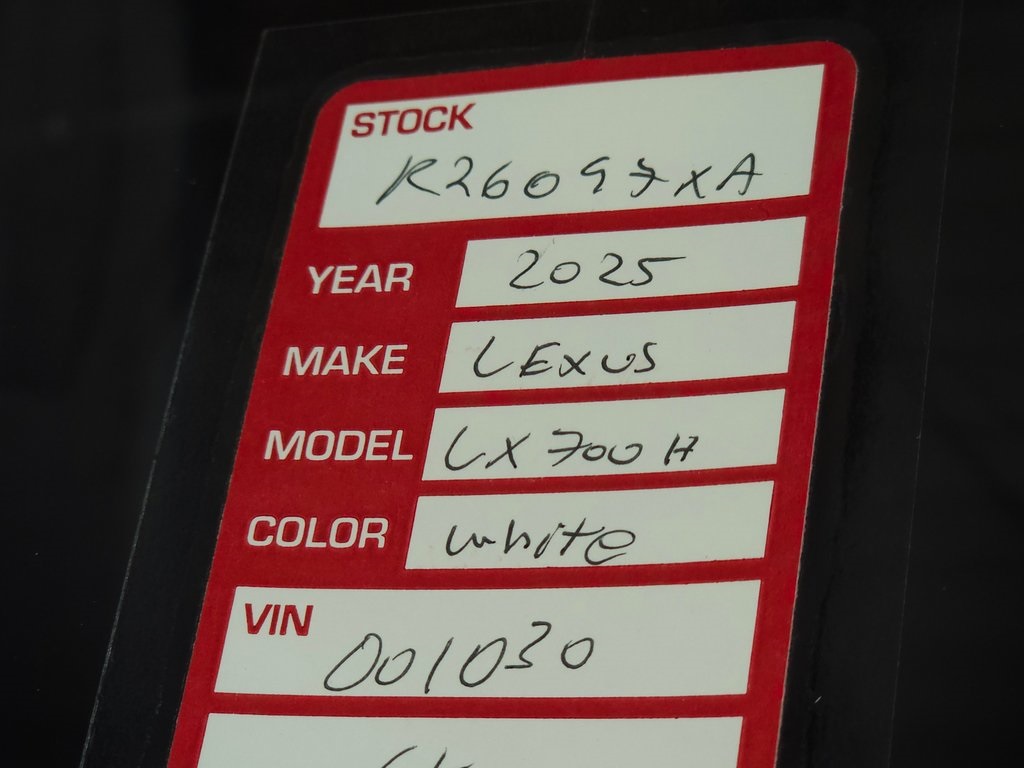 STOCK
R26097XA
YEAR 2025
MAKE LEXUS
MODEL LX 700 H
COLOR white
VIN
001030